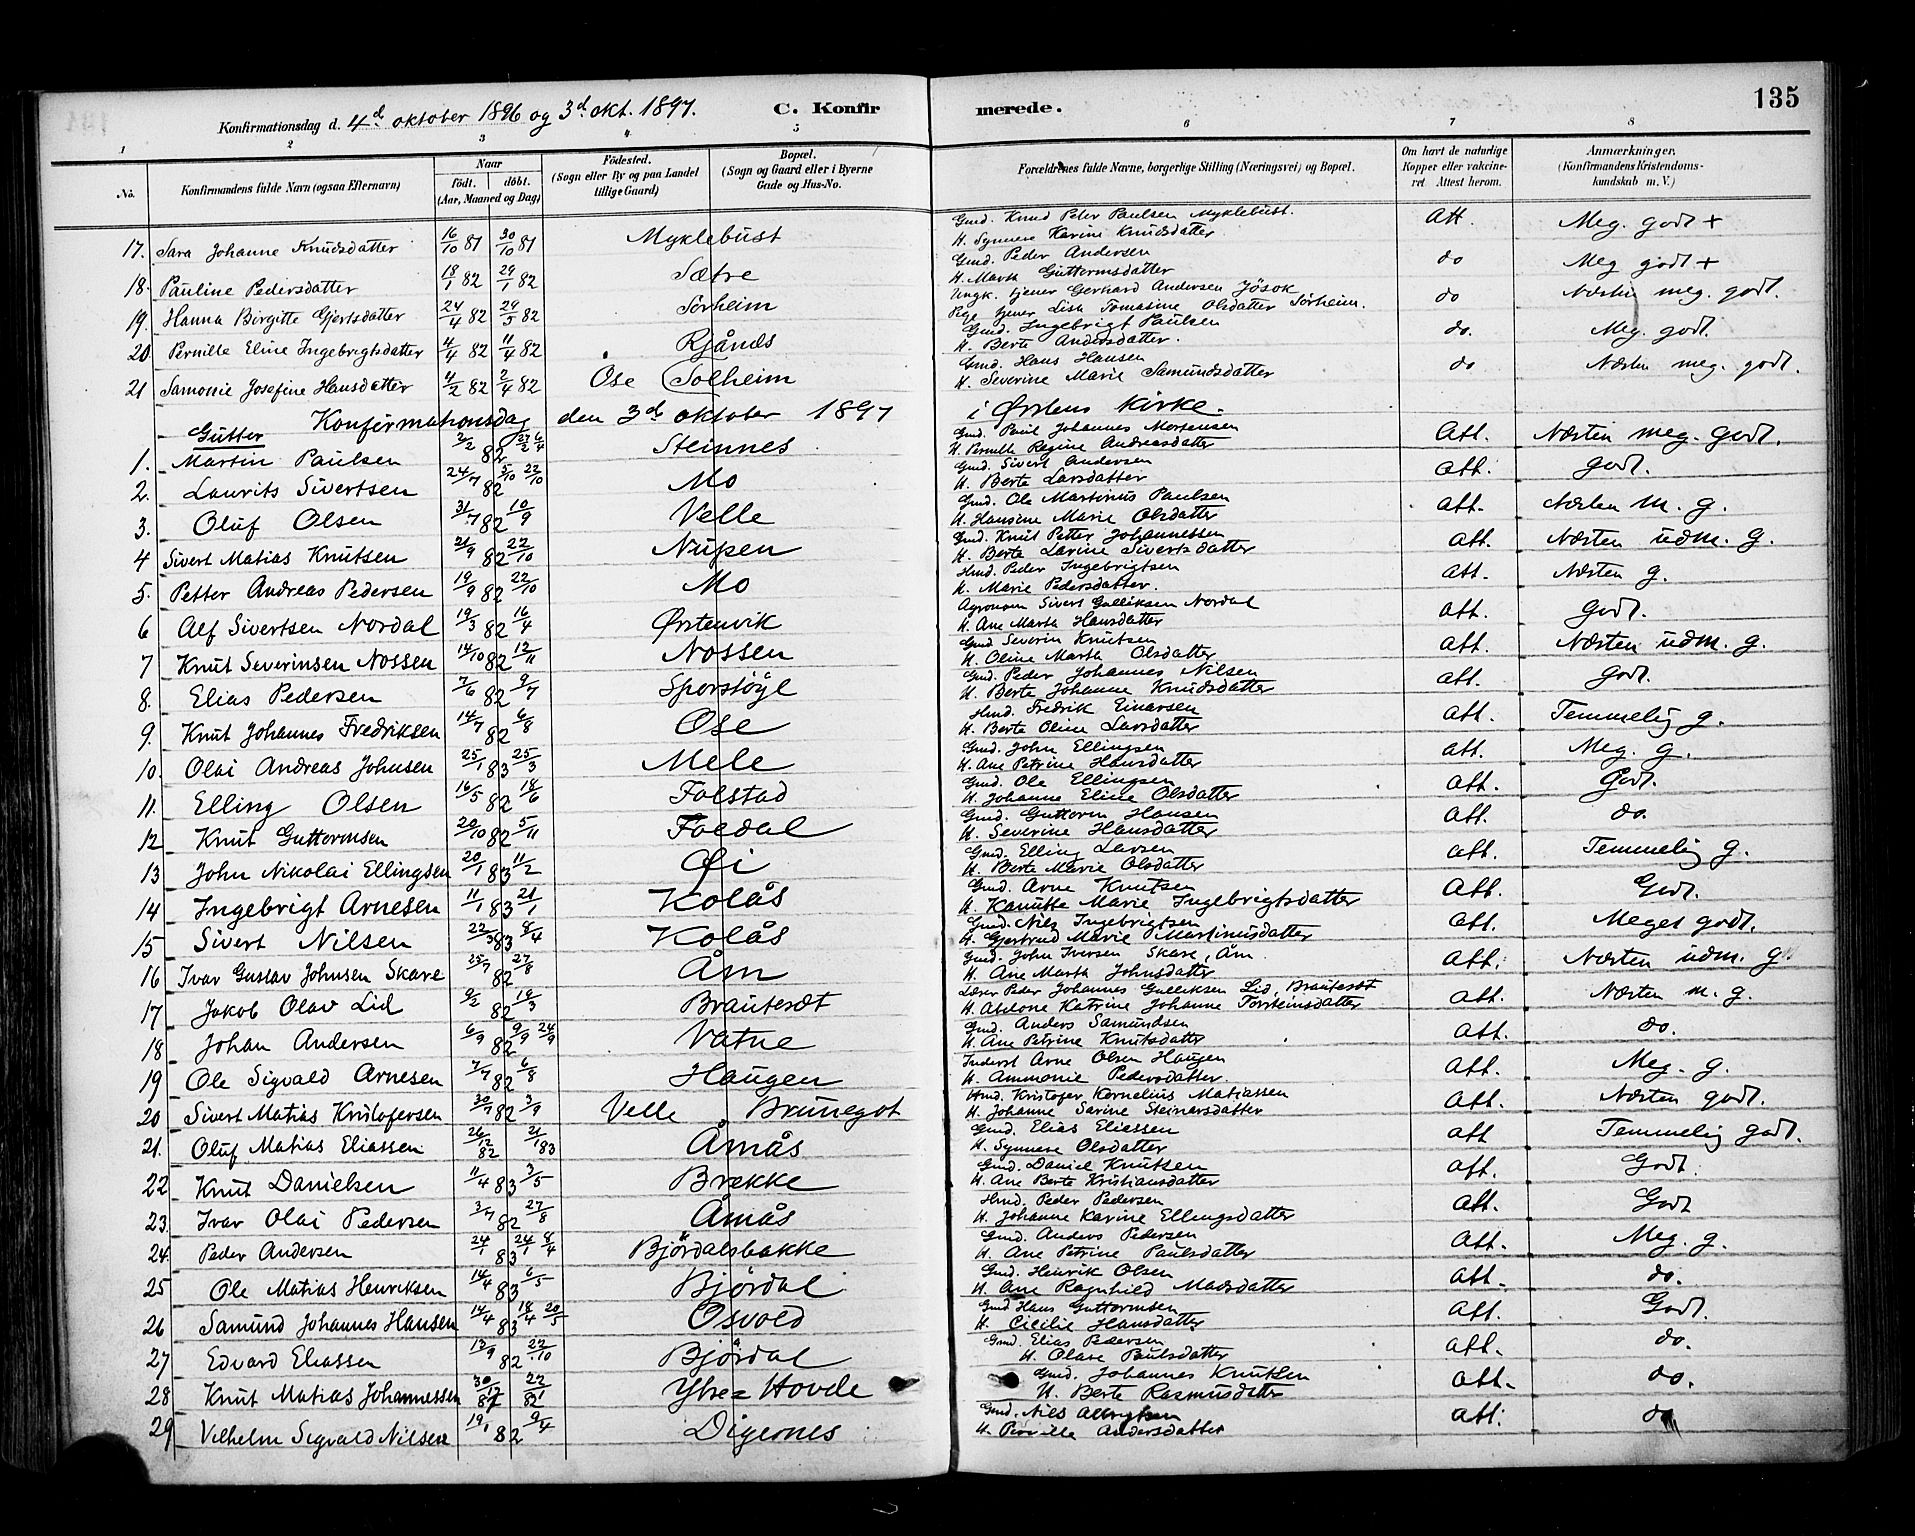 135
Konfirmationsdag d. 4d oktober 1896 og 3d okt. 1897. C. Konfirmerede.
1 2 3 4 5 6 7 8
No. Konfirmandens fulde Navn (ogsaa Efternavn) Naar födt. döbt. (Aar, Maaned og Dag) Födested. (Sogn eller By og paa Landet tillige Gaard) Bopæl. (Sogn og Gaard eller i Byerne Gade og Hus-No. Forældrenes fulde Navne, borgerlige Stilling (Næringsvei) og Bopæl. Om havt de naturlige Kopper eller vakcineret. Attest herom. Anmærkninger, (Konfirmandens Kristendomskundskab m. V.)
17. Sara Johanne Knudsdatter 16/10 81 30/10 81 Myklebust Gmd. Knud Peter Paulsen Myklebust. H. Synnøve Karine Knudsdatter Att. Meg. godt +
18. Pauline Pedersdatter 18/1 82 29/1 82 Sætre Gmd. Peder Andersen H. Marth Guttormsdatter do Meg godt +
19. Hanna Birgitte Gjertsdatter 24/4 82 29/5 82 Sørheim Ungk. tjener Gerhard Andersen Jösok Pige tjener Lisa Tomasine Olsdatter Sørheim. do Næsten meg. godt.
20. Pernille Eline Ingebrigtsdatter 4/4 82 11/4 82 Rjånes Gmd. Ingebrigt Paulsen H. Berte Andersdatter. do. Meg. godt.
21 Samonie Josefine Hansdatter 4/2 82 2/4 82 Ose (Solheim Gmd. Hans Hansen H. Severine Marie Samundsdatter do Næsten meg. godt.
Konfirmationsdag den 3d oktober 1897 i Ørstens Kirke.
Gutter
1. Martin Paulsen 2/2 82 Steinnes Gmd. Paul Johannes Mortensen H. Pernille Regine Andreasdatter Att. Næsten meg. godt.
2. Laurits Sivertsen 24/7 82 5/10 22/10 Mo Gmd. Sivert Andersen H. Berte Larsdatter att. godt.
3. Oluf Olsen 31/7 82 10/9 Velle Gmd. Ole Martinus Paulsen H. Hansine Marie Olsdatter att. Næsten m. g.
4 Sivert Matias Knutsen 21/9 82 22/10 Nupen Gmd. Knut Petter Johannessen H. Berte Larine Sivertsdatter att. Næsten udm. g.
5. Petter Andreas Pedersen 19/9 82 22/10 Mo Hmd. Peder Ingebrigtsen H. Marie Pedersdatter. att. Næsten g.
6 Alf Sivertsen Nordal 19/3 82 16/4 Ørstenvik Agronom Sivert Gulliksen Nordal H. Ane Marth Hansdatter att. godt.
7 Knut Severinsen Nossen 14/10 82 12/11 Nossen Gmd Severin Knutsen H. Oline Marth Olsdatter att. Næsten udm. g.
8. Elias Pedersen 7/6 82 9/7 Sporstöyl Gmd. Peder Johannes Nilsen H. Berte Johanne Knudsdatter att. godt.
9. Knut Johannes Fredriksen 14/7 82 6/8 Ose Hmd. Fredrik Einarsen H. Berte Oline Larsdatter att. Temmelig g.
10. Olai Andreas Johnsen 25/1 83 25/3 Mele Gmd. John Ellingsen H. Ane Petrine Hansdatter att. Meg. g.
11. Elling Olsen 16/5 82 18/6 Folstad Gmd. Ole Ellingsen H. Johanne Eline Olsdatter att. Godt.
12 Knut Guttormsen 20/10 82 5/11 Foldal Gmd. Guttorm Hansen H. Severine Hansdatter att. do.
13 John Nikolai Ellingsen 20/1 83 11/2 Øi Gmd. Elling Larsen H. Berte Marie Olsdatter att. Temmelig g.
14 Ingebrigt Arnesen 11/1 83 21/1 Kolås Gmd. Arne Knutsen H. Kanutte Marie Ingebrigtsdatter Att. Godt.
15 Sivert Nilsen 22/3 83 8/4 Kolås Gmd. Nils Ingebrigtsen H. Gjertrud Marie Martinusdatter att. Meget godt.
16 Ivar Gustav Johnsen Skare 25/7 82 27/8 Åm Gmd. John Iversen Skare, Åm. H. Ane Marth Johnsdatter Att. Næsten udm. g
17 Jakob Olav Lid 9/2 82 19/3 Brautesæt Lærer Peder Johannes Gulliksen Lid, Brautesæt H. Abelone Katrine Johanne Torsteinsdatter att. Næsten m. g.
18 Johan Andersen 6/9 82 9/9 24/9 Vatne Gmd. Anders Samundsen H. Ane Petrine Knutsdatter att. do.
19 Ole Sigvald Arnesen 7/7 82 6/8 Haugen Inderst Arne Olsen Haugen H. Ammonie Pedersdatter. att. Meg. g.
20 Sivert Matias Kristofersen 30/7 82 3/9 Velle Brunegot Hmd. Kristofer Kornelius Matiassen H. Johanne Sarine Steinarsdatter att. Næsten godt.
21. Oluf Matias Eliassen 26/12 82 21/1 83 Åmås Gmd. Elias Eliassen H. Synnøve Olsdatter att Temmelig godt.
22 Knut Danielsen 11/4 83 3/5 Brekke Gmd. Daniel Knutsen H. Ane Berte Kristiansdatter att. Godt.
23. Ivar Olai Pedersen 3/7 82 27/8 Åmås Hmd. Peder Pedersen H. Johanne Karine Ellingsdatter att. Godt
24. Peder Andersen 24/1 83 24/1 8/4 Björdalsbakke Gmd. Anders Pedersen H. Ane Petrine Paulsdatter Att. Meg. g.
25 Ole Matias Henriksen 14/4 83 6/5 Björdal Gmd. Henrik Olsen H. Ane Ragnhild Madsdatter att. do.
26 Samund Johannes Hansen 14/4 83 18/4 20/5 Osvold Gmd Hans Guttormsen H. Cicilie Hansdatter att. Godt.
27 Edvard Eliassen 13/9 82 22/10 Björdal Gmd. Elias Pedersen H. Olave Paulsdatter att. do.
28 Knut Matias Johannessen 30/12 81 22/1 82 Ytre=Hovde Gmd. Johannes Knutsen H. Berte Rasmusdatter att. do.
29 Vilhelm Sigvald Nilsen 19/1 82 9/4 Digernes Gmd. Nils Albrigtsen H. Pernille Andersdatter att. do